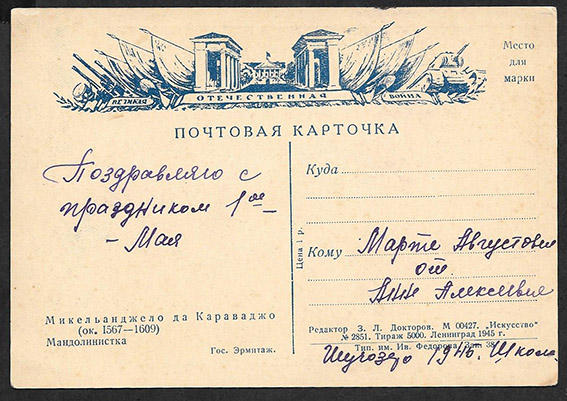 ВЕЛИКАЯ ОТЕЧЕСТВЕННАЯ ВОЙНА
Место
для
марки
ПОЧТОВАЯ КАРТОЧКА
Поздравляю с
праздником 1ое
- Мая
Микельанджело да Караваджо
(ок. 1567—1609)
Мандолинистка
Гос. Эрмитаж.
Цена 1 р.
Куда
Кому Марте Августовне
от
Анны Алексеевны
Редактор З. Л. Докторов. М 00427. „Искусство"
№ 2851. Тираж 5000. Ленинград 1945 г.
Тип. им. Ив. Федорова. Зак. 38
1946. Школа